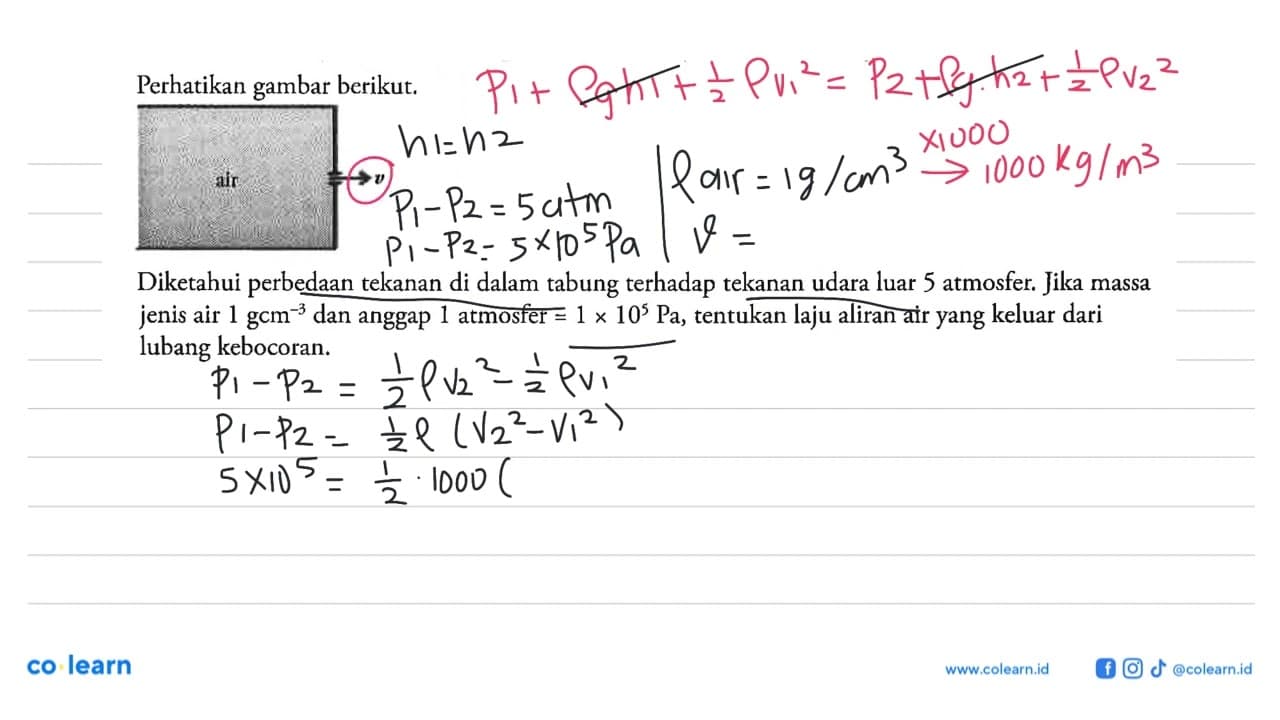 Perhatikan gambar berikut.
P1 + ρgh1 + 1/2 ρv1² = P2 + ρg.h2 + 1/2 ρv2²
h1 = h2
air
v
P1 - P2 = 5 atm
P1 - P2 = 5 × 10⁵ Pa
ρ air = 1 g/cm³ ×1000 → 1000 kg/m³
v =
Diketahui perbedaan tekanan di dalam tabung terhadap tekanan udara luar 5 atmosfer. Jika massa
jenis air 1 gcm⁻³ dan anggap 1 atmosfer = 1 × 10⁵ Pa, tentukan laju aliran air yang keluar dari
lubang kebocoran.
P1 - P2 = 1/2 ρv2² - 1/2 ρv1²
P1 - P2 = 1/2 ρ (v2² - v1²)
5 × 10⁵ = 1/2 · 1000 (
co learn
www.colearn.id
@colearn.id